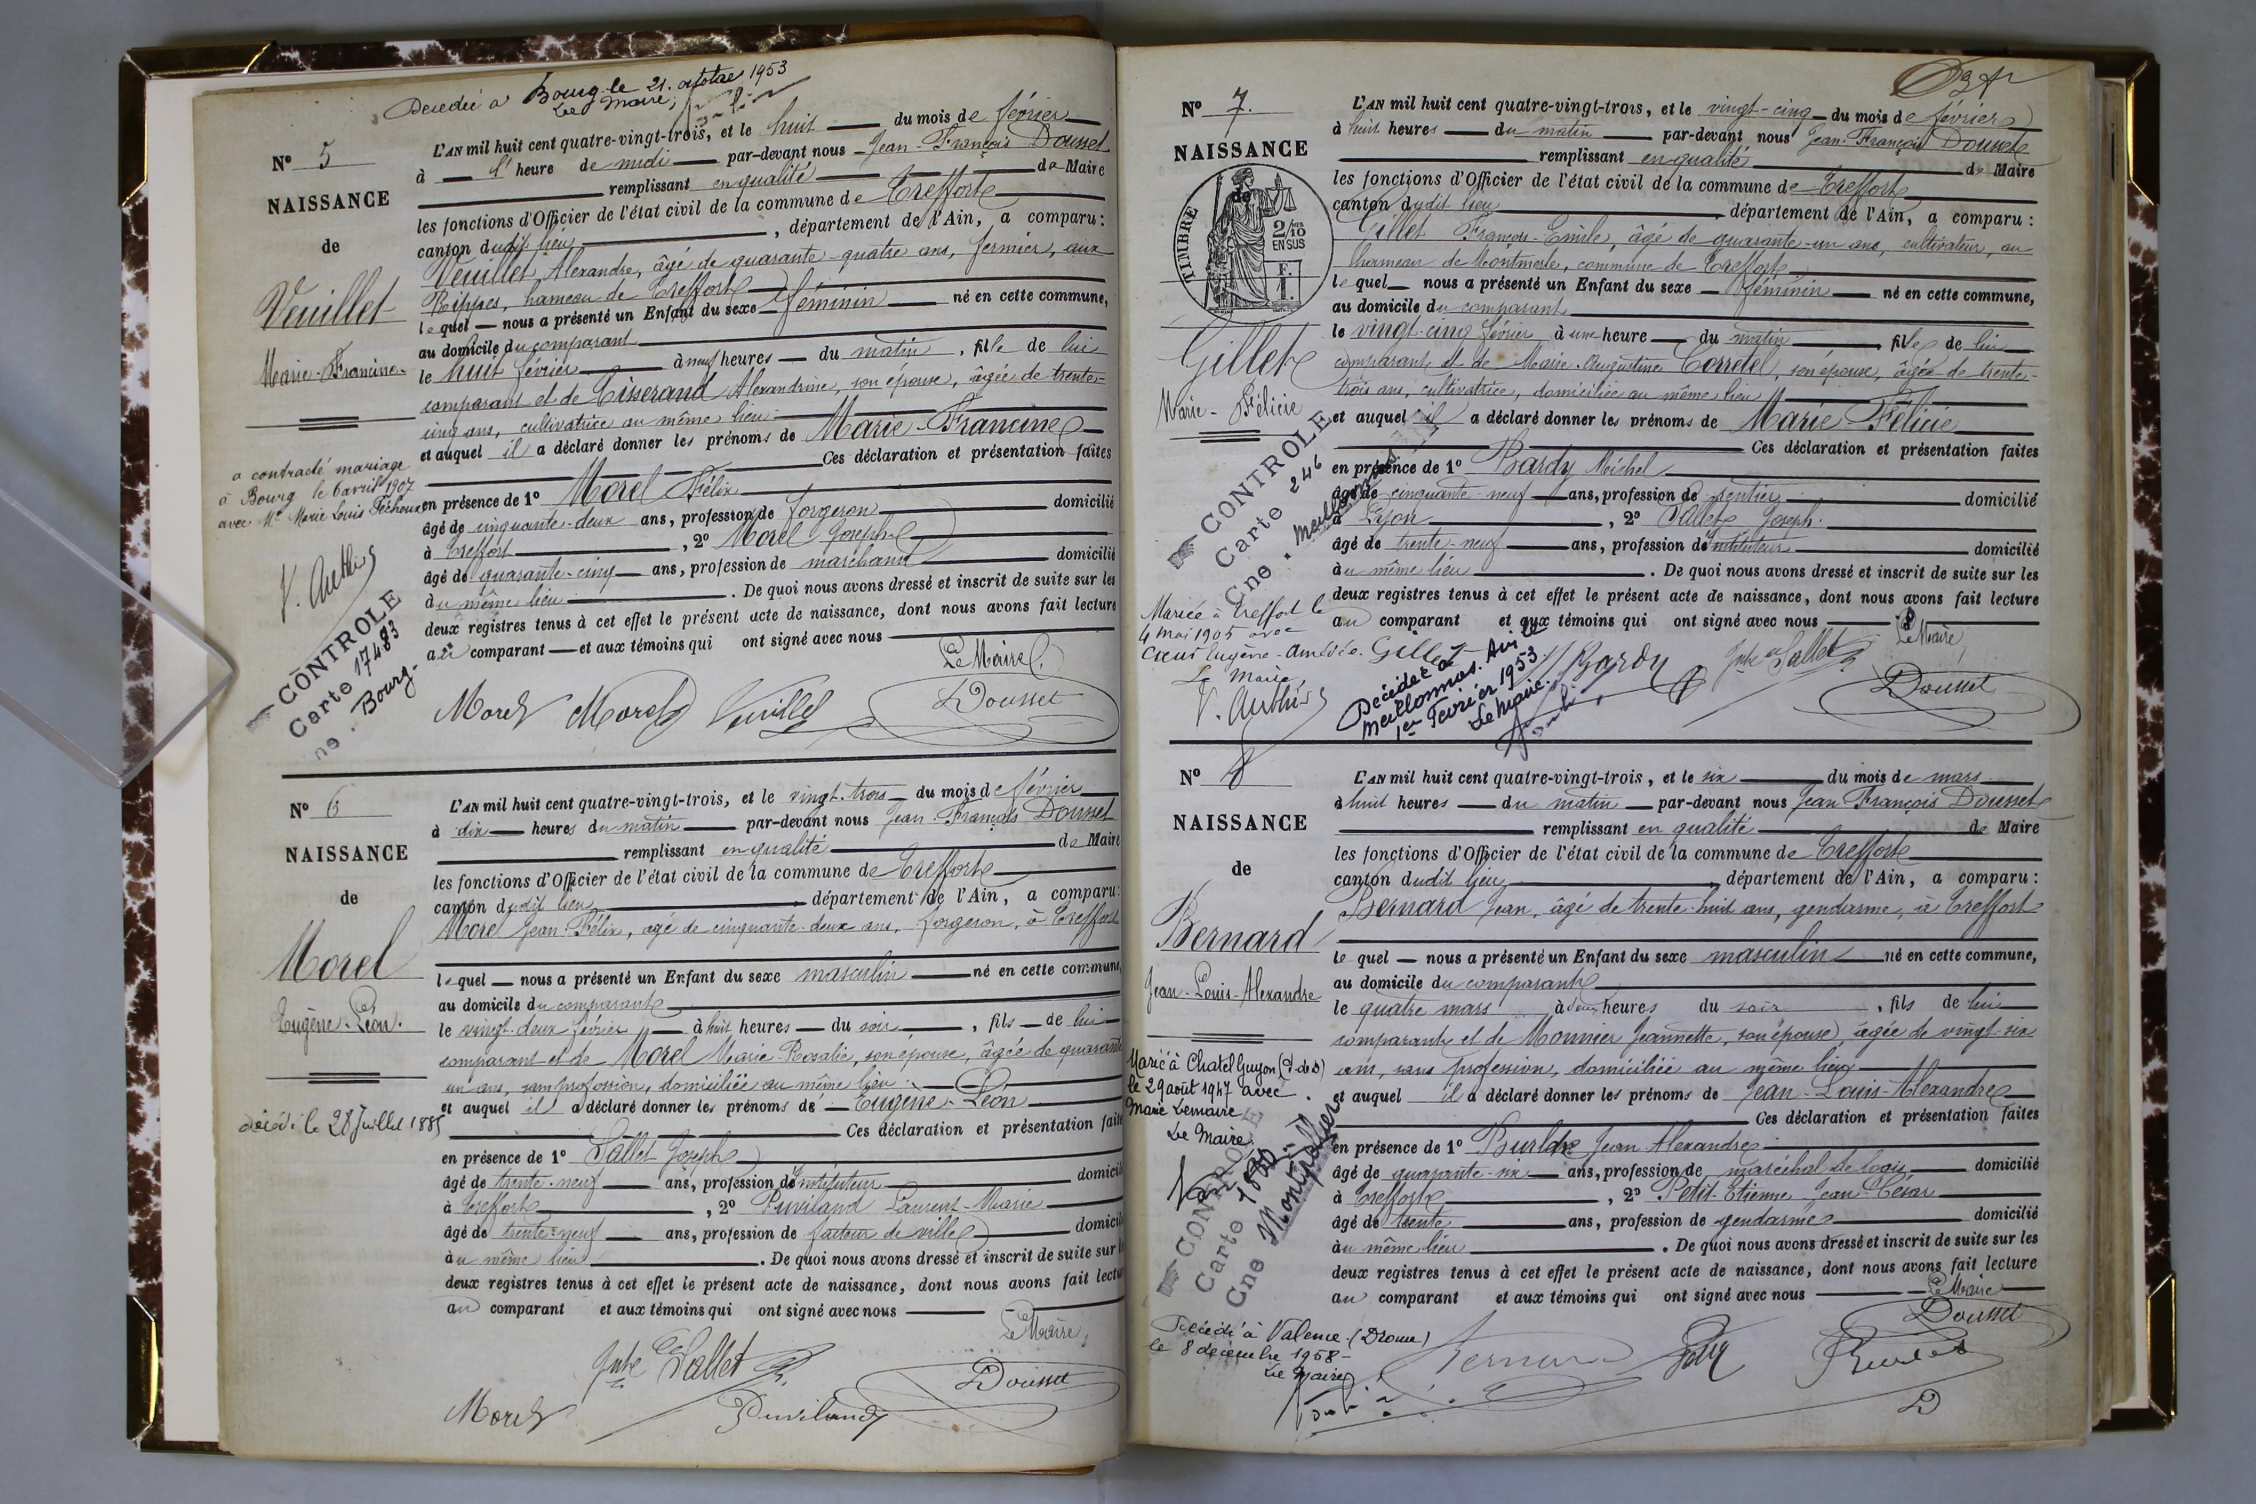 Décédée à Bourg le 21 octobre 1953
Le Maire,
N° 5
NAISSANCE
de
Veuillet
Marie-Francine
a contracté mariage
à Bourg le 6 avril 1907
avec Me Marie Louis
CONTROLE
Carte 17483
ne. Bourg-
L'AN mil huit cent quatre-vingt-trois, et le huit du mois de février
à l' heure de midi par-devant nous Jean-François Dousset
remplissant en qualité de Maire
les fonctions d'Officier de l'état civil de la commune de Treffort
canton dudit lieu, département de l'Ain, a comparu :
Veuillet Alexandre, âgé de quarante-quatre ans, fermier, aux
Rippes, hameau de Treffort
lequel nous a présenté un Enfant du sexe féminin né en cette commune,
au domicile du comparant
le huit février à neuf heures du matin, fille de lui
comparant et de Tisserand Alexandrine, son épouse, âgée de trente-
cinq ans, cultivatrice au même lieu
et auquel il a déclaré donner les prénoms de Marie-Francine
Ces déclaration et présentation faites
en présence de 1° Morel Félix
âgé de cinquante-deux ans, profession de forgeron domicilié
à Treffort, 2° Morel Joseph
âgé de quarante-cinq ans, profession de marchand domicilié
au même lieu. De quoi nous avons dressé et inscrit de suite sur les
deux registres tenus à cet effet le présent acte de naissance, dont nous avons fait lecture
au comparant et aux témoins qui ont signé avec nous
Le Maire
Morel Morel Veuillet Dousset
N° 6
NAISSANCE
de
Morel
Eugène-Léon.
décédé le 28 Juillet 1885
L'AN mil huit cent quatre-vingt-trois, et le vingt-trois du mois de février
à dix heures du matin par-devant nous Jean-François Dousset
remplissant en qualité de Maire
les fonctions d'Officier de l'état civil de la commune de Treffort
canton dudit lieu département de l'Ain, a comparu :
Morel Jean-Félix, âgé de cinquante-deux ans, forgeron, à Treffort
lequel nous a présenté un Enfant du sexe masculin né en cette commune,
au domicile du comparant
le vingt-deux février à huit heures du soir, fils de lui
comparant et de Morel Marie-Rosalie, son épouse, âgée de quarante
un ans, sans profession, domiciliée au même lieu
et auquel il a déclaré donner les prénoms de Eugène-Léon
Ces déclaration et présentation faites
en présence de 1° Sallet Joseph
âgé de trente-neuf ans, profession d'Instituteur domicilié
à Treffort, 2° Puvilland Laurent-Marie
âgé de trente-neuf ans, profession de facteur de ville domicilié
au même lieu. De quoi nous avons dressé et inscrit de suite sur les
deux registres tenus à cet effet le présent acte de naissance, dont nous avons fait lecture
au comparant et aux témoins qui ont signé avec nous
Le Maire,
Jph Sallet Dousset
Morel Puvilland
N° 7.
NAISSANCE
de
TIMBRE
2/10 EN SUS
Gillet
Marie-Félicie
CONTROLE
Carte 246
Cne. Meillonnas
Mariée à Treffort le
4 mai 1905 avec
Cœur Eugène-Amédée.
Le Maire,
L'AN mil huit cent quatre-vingt-trois, et le vingt-cinq du mois de février
à huit heures du matin par-devant nous Jean-François Dousset
remplissant en qualité de Maire
les fonctions d'Officier de l'état civil de la commune de Treffort
canton dudit lieu département de l'Ain, a comparu :
Gillet François-Emile, âgé de quarante-un ans, cultivateur, au
hameau de Montmerle, commune de Treffort
lequel nous a présenté un Enfant du sexe féminin né en cette commune,
au domicile du comparant
le vingt-cinq février à une heure du matin, fille de lui
comparant et de Marie-Augustine Corretel, son épouse, âgée de trente-
trois ans, cultivatrice, domiciliée au même lieu
et auquel il a déclaré donner les prénoms de Marie Félicie
Ces déclaration et présentation faites
en présence de 1° Bardy Michel
âgé de cinquante-neuf ans, profession de rentier domicilié
à Lyon, 2° Sallet Joseph.
âgé de trente-neuf ans, profession d'Instituteur domicilié
au même lieu. De quoi nous avons dressé et inscrit de suite sur les
deux registres tenus à cet effet le présent acte de naissance, dont nous avons fait lecture
au comparant et aux témoins qui ont signé avec nous
Le Maire,
Gillet Bardy Jph Sallet Dousset
Décédée à
Meillonnas. Ain le
1er Février 1953
Le Maire.
N° 8
NAISSANCE
de
Bernard
Jean-Louis-Alexandre
Marié à Chatel Guyon (P. de D)
le 29 août 1947 avec
Marie Lemaire
Le Maire
CONTROLE
Carte
Cne Montpellier
Décédé à Valence (Drome)
le 8 décembre 1958-
Le Maire
L'AN mil huit cent quatre-vingt-trois, et le six du mois de mars
à huit heures du matin par-devant nous Jean François Dousset
remplissant en qualité de Maire
les fonctions d'Officier de l'état civil de la commune de Treffort
canton dudit lieu, département de l'Ain, a comparu :
Bernard Jean, âgé de trente-huit ans, gendarme, à Treffort
lequel nous a présenté un Enfant du sexe masculin né en cette commune,
au domicile du comparant
le quatre mars à deux heures du soir, fils de lui
comparant et de Monnier Jeannette, son épouse, âgée de vingt-six
ans, sans profession, domiciliée au même lieu
et auquel il a déclaré donner les prénoms de Jean-Louis-Alexandre
Ces déclaration et présentation faites
en présence de 1° Jean Alexandre
âgé de quarante-six ans, profession de maréchal de logis domicilié
à Treffort, 2° Petit-Etienne Jean-César
âgé de trente ans, profession de gendarme domicilié
au même lieu. De quoi nous avons dressé et inscrit de suite sur les
deux registres tenus à cet effet le présent acte de naissance, dont nous avons fait lecture
au comparant et aux témoins qui ont signé avec nous
Le Maire
Dousset
Bernard Petit